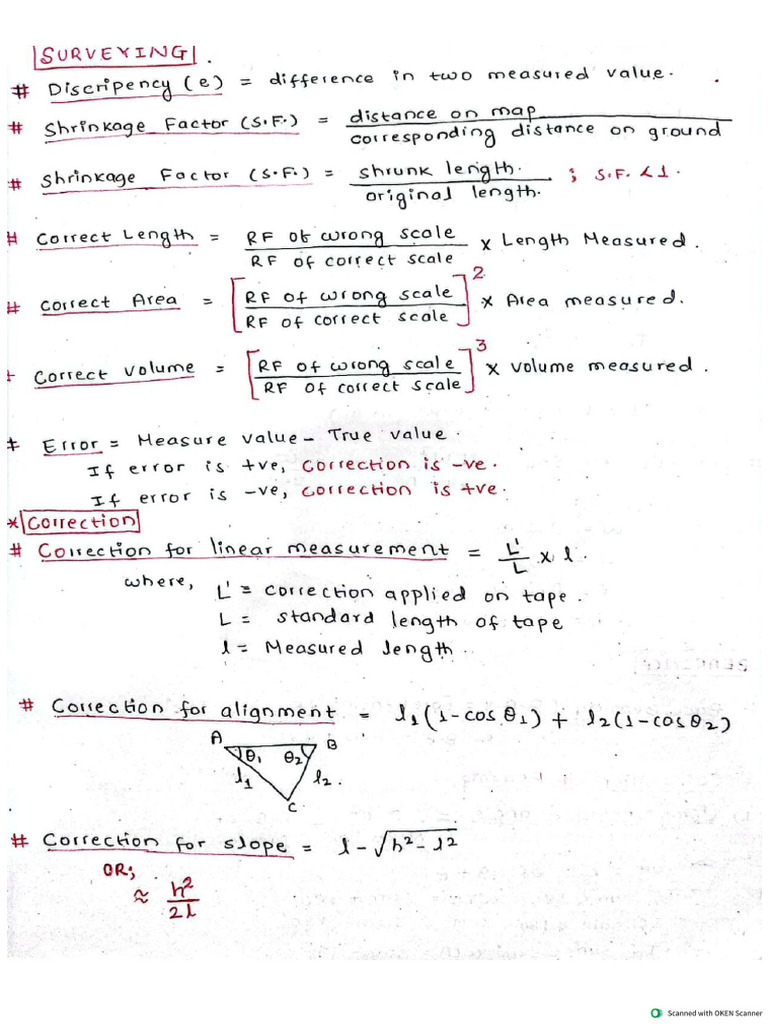 SURVEYING .
# Discripency (e) = difference in two measured value.
# Shrinkage Factor (S.F.) = distance on map / corresponding distance on ground
# Shrinkage Factor (S.F.) = shrunk length. / original length. ; S.F. < 1.
# Correct Length = RF of wrong scale / RF of correct scale x Length Measured.
# Correct Area = [RF of wrong scale / RF of correct scale]² x Area measured.
+ Correct Volume = [RF of wrong scale / RF of correct scale]³ x Volume measured.
# Error = Measure value - True value.
If error is +ve, correction is -ve.
If error is -ve, correction is +ve.
* Correction
# Correction for linear measurement = L'/L x l.
where, L' = correction applied on tape.
L = standard length of tape
l = Measured length.
# Correction for alignment = l₁(1-cosθ₁) + l₂(1-cosθ₂)
A B
θ₁ θ₂
l₁ l₂.
C
# Correction for slope = l - √h² - l²
OR;
≈ h²/2l
Scanned with OKEN Scanner